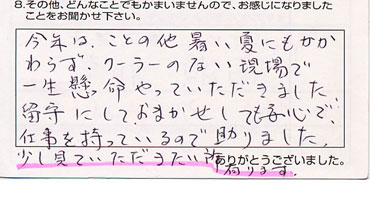 8.その他、どんなことでもかまいませんので、お感じになりました
ことをお聞かせ下さい。
今年は、ことの他暑い夏にもかか
わらず、クーラーのない現場で
一生懸命やっていただきました。
留守にしておまかせしても安心で、
仕事を持っているので助りました。
少し見ていただきたい所
有ります。
ありがとうございました。